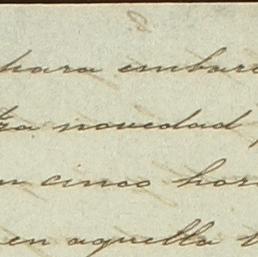 para embar
novedad
cinco hor
en aquella